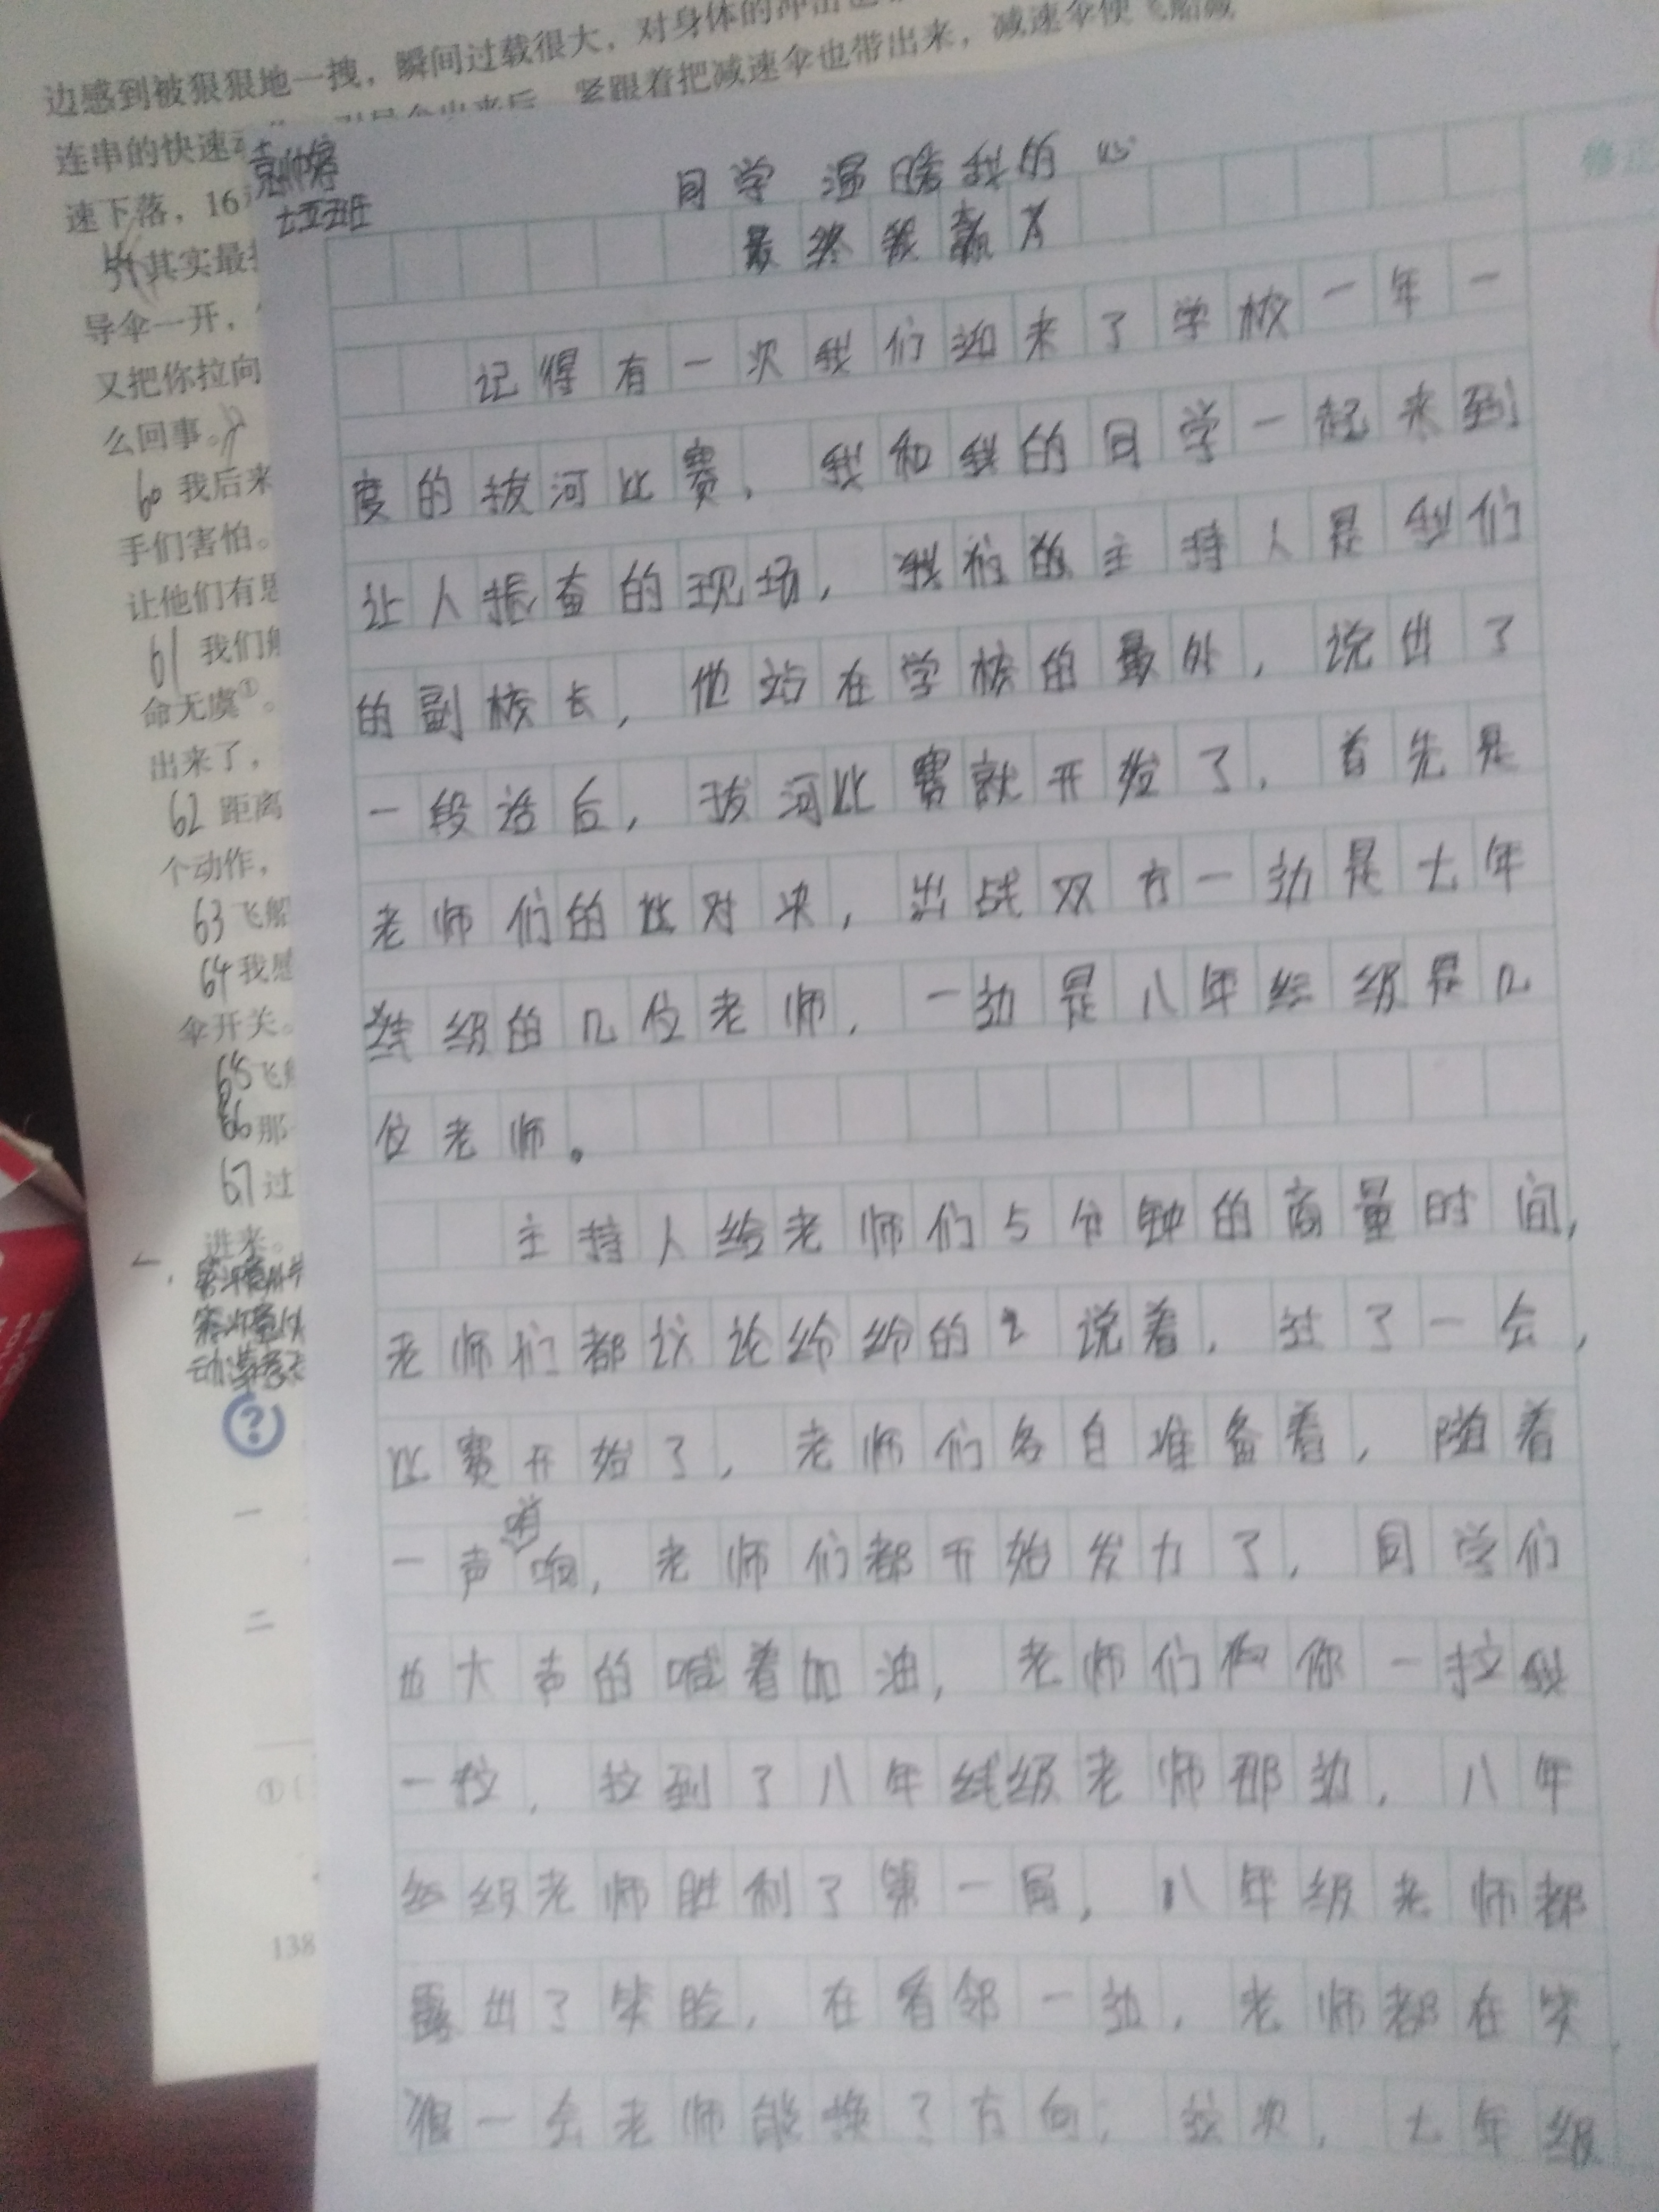 边感到被狠狠地一拽，瞬间过载很大，对身体的冲击也
连串的快速 紧跟着把减速伞也带出来，减速伞使飞船减
速下落，16
其实最
导伞一开，
又把你拉向
么回事。
60 我后来
手们害怕。
让他们有思
61 我们
命无虞①。
出来了，
62 距离
个动作，
63 飞船
64 我感
伞开关。
65 飞船
66 那
67 过
进来。
一
二
①
138
修正
七五班
同学 温暖我的心
最终我赢了
记得有一次我们迎来了学校一年一
度的拔河比赛，我和我的同学一起来到
让人振奋的现场，我们的主持人是我们
的副校长，他站在学校的最外，说出了
一段话后，拔河比赛就开始了，首先是
老师们的比对决，出战双方一边是七年
级的几位老师，一边是八年级是几
位老师。
主持人给老师们5分钟的商量时间，
老师们都议论纷纷的说着，过了一会，
比赛开始了，老师们各自准备着，随着
一声哨响，老师们都开始发力了，同学们
也大声的喊着加油，老师们你一拉我
一拉，拉到了八年级老师那边，八年
级老师胜利了第一局，八年级老师都
露出了笑脸，在看那一边，老师都在笑
很一会老师就换了方向；这次，七年级